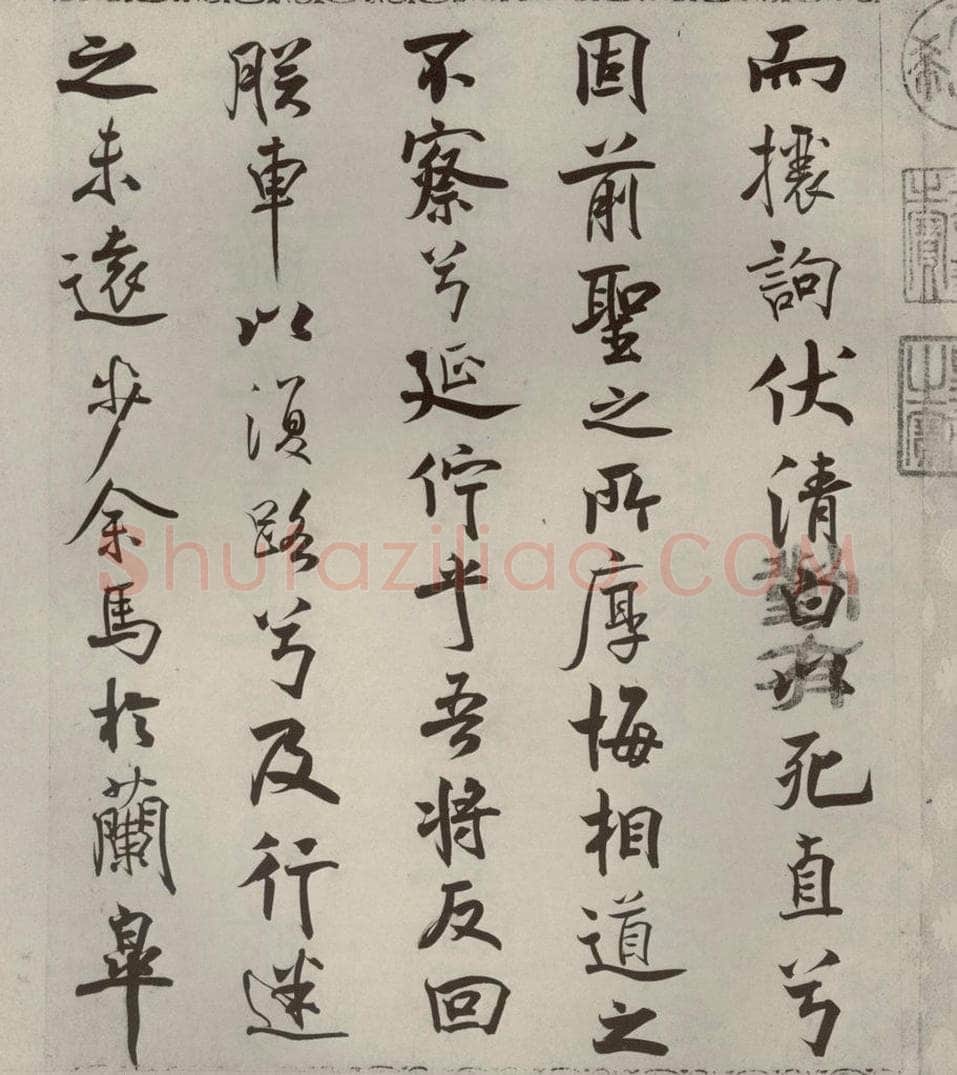 而攘訽伏清白以死直兮
固前聖之所厚悔相道之
不察兮延佇乎吾将反回
朕車以湏路兮及行迷
之未遠步余馬於蘭皋
Shufaziliao.COM